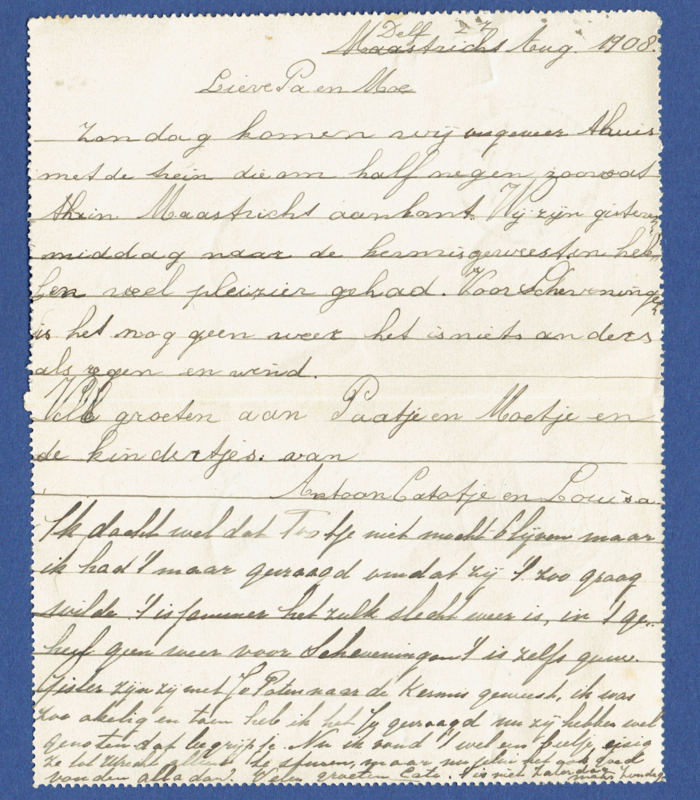 Delf 27
Maastricht Aug. 1908.
Lieve Pa en Moe
Zondag komen wij ongeveer thuis
met de trein die om half negen zoowat
thuis Maastricht aankomt. Wij zijn gisteren
middag naar de kermis geweest en heb
ben veel pleizier gehad. Voor Scheveningen
is het nog geen weer het is niets anders
als regen en wind.
Vele groeten aan Paatje en Moetje en
de kindertjes. van
Antoon Catotje en Louisa
Ik dacht wel dat Tootje niet mocht blijven maar
ik had 't maar gevraagd omdat zij 't zoo graag
wilde 't is jammer het zulk slecht weer is, in 't ge-
heel geen weer voor Scheveningen 't is zelfs guur.
Gister zijn zij met Jo Poten naar de Kermis geweest, ik was
zoo akelig en toen heb ik het Jo gevraagd nu zij hebben wel
genoten dat begrijp je. Nu ik vond 't wel een beetje eisig
ze tot Utrecht alleen te sturen, maar nu zien het ook goed
vonden alla dan. Velen groeten Cato. 't is niet Zaterdag
maar Zondag